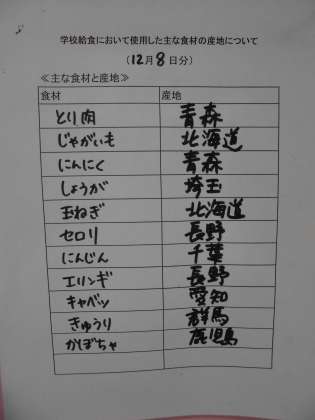 学校給食において使用した主な食材の産地について
（12月8日分）
≪主な食材と産地≫
食材 産地
とり肉 青森
じゃがいも 北海道
にんにく 青森
しょうが 埼玉
玉ねぎ 北海道
セロリ 長野
にんじん 千葉
エリンギ 長野
キャベツ 愛知
きゅうり 群馬
かぼちゃ 鹿児島